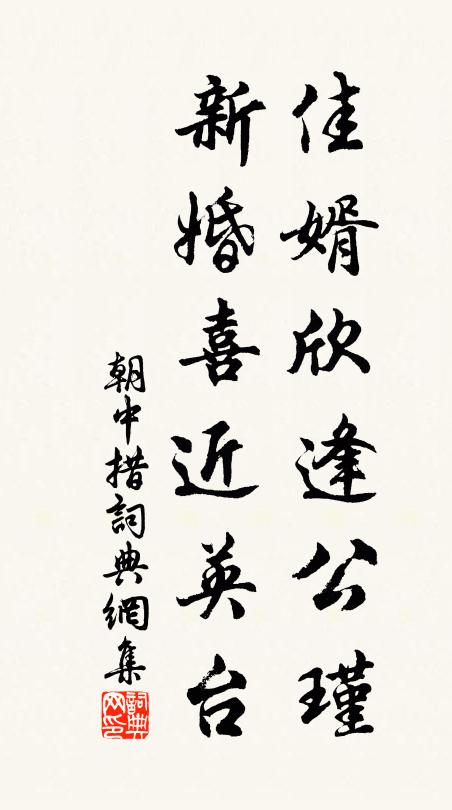 佳婿欣逢公瑾
新婚喜近英台
朝中措詞典網集
詞典網印